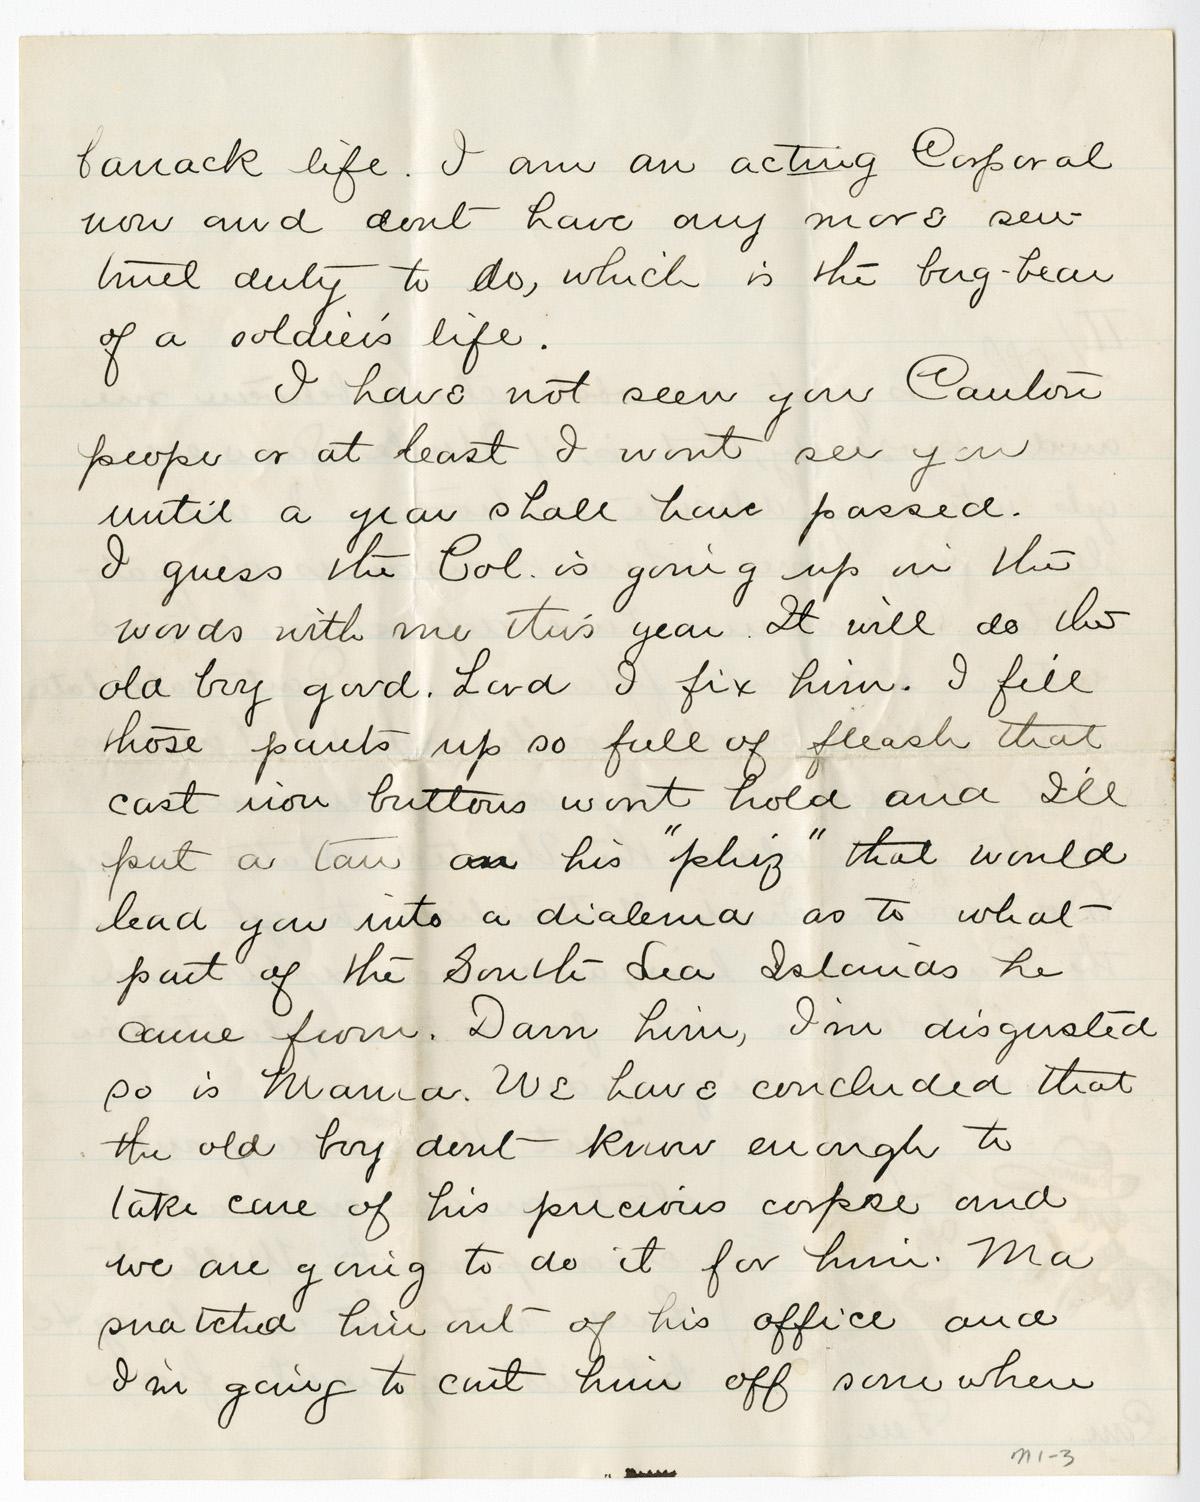 barrack life. I am an acting Corporal
now and dont have any more sen-
tinel duty to do, which is the bug-bear
of a soldier's life.
I have not seen you Canton
peope or at least I wont see you
until a year shall have passed.
I guess the Col. is going up in the
words with me this year. It will do the
old boy good. Lord I fix him. I fill
those pants up so full of fleash that
cast iron buttons wont hold and I'll
put a tan on his "phiz" that would
lead you into a dialema as to what
part of the South Sea Islands he
came from. Darn him, I'm disgusted
so is Mama. We have concluded that
the old boy dont know enough to
take care of his precious corpse and
we are going to do it for him. Ma
snatched him out of his office and
I'm going to cart him off somewhere
M1-3